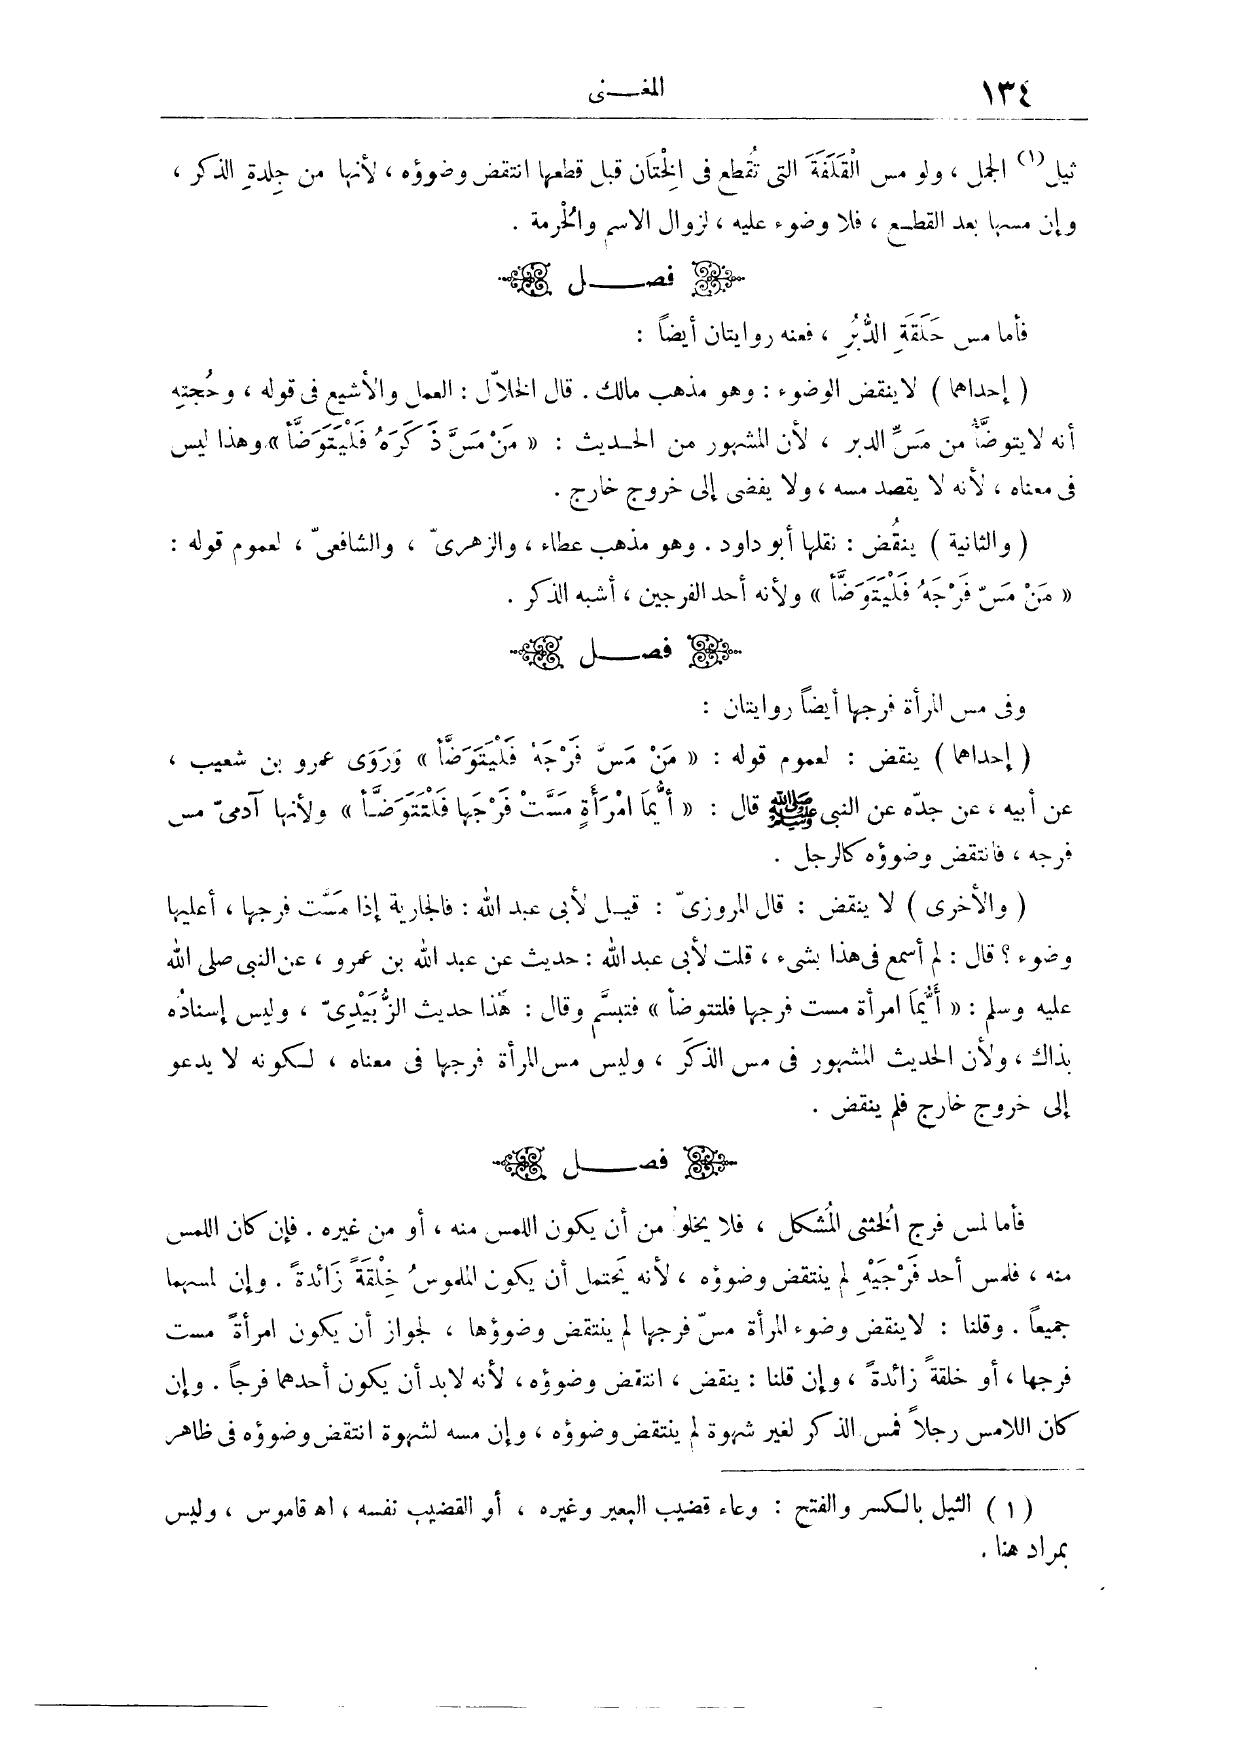 ١٣٤
المغـــنى
ثيل (١) الجمل ، ولو مس الْقَلَفَةَ التى تُقطع فى الخِْتَان قبل قطعها انتقض وضوؤه ، لأنها من جِلدةِ الذكر ،
وإن مسها بعد القطـع ، فلا وضوء عليه ، لزوال الاسم والحُرمة .
فصـــــل
فأما مس حَلَقَةِ الدُّبُرِ ، فعنه روايتان أيضاً :
( إحداهما ) لاينقض الوضوء : وهو مذهب مالك . قال الخلاّل : العمل والأشيع فى قوله ، وحُجتِه
أنه لايتوضَّأُ من مَسِّ الدبر ، لأن المشهور من الحـديث : « مَنْ مَسَّ ذَكَرَهُ فَلْيَتَوَضَّأْ » وهذا ليس
فى معناه ، لأنه لا يقصد مسه ، ولا يفضى إلى خروج خارج .
( والثانية ) ينقُض : نقلها أبو داود . وهو مذهب عطاء ، والزهرىّ ، والشافعىّ ، لعموم قوله :
« مَنْ مَسّ فَرْجَهُ فَلْيَتَوَضَّأْ » ولأنه أحد الفرجين ، أشبه الذكر .
فصـــــل
وفى مس المرأة فرجها أيضاً روايتان :
( إحداهما ) ينقض : لعموم قوله : « مَنْ مَسَّ فَرْجَهُ فَلْيَتَوَضَّأْ » وَرَوَى عمرو بن شعيب ،
عن أبيه ، عن جدّه عن النبى ﷺ قال : « أَيُّمَا امْرَأَةٍ مَسَّتْ فَرْجَها فَلْتَتَوَضَّـأْ » ولأنها آدمىّ مس
فرجه ، فانتقض وضوؤه كالرجل .
( والأخرى ) لا ينقض : قال المروزىّ : قيـل لأبى عبد الله : فالجارية إذا مَسَّت فرجها ، أعليها
وضوء ؟ قال : لم أسمع فى هذا بشىء ، قلت لأبى عبد الله : حديث عن عبد الله بن عمرو ، عن النبى صلى الله
عليه وسلم : « أَيُّمَا امرأة مست فرجها فلتتوضأ » فتبسَّم وقال : هٰذا حديث الزُّبَيْدِىّ ، وليس إسنادُه
بذاك ، ولأن الحديث المشهور فى مس الذكَر ، وليس مس المرأة فرجها فى معناه ، لـكونه لا يدعو
إلى خروج خارج فلم ينقض .
فصـــــل
فأما لمس فرج الخُنثى المُشكل ، فلا يخلو من أن يكون اللمس منه ، أو من غيره . فإن كان اللمس
منه ، فلمس أحد فَرْجَيْهِ لم ينتقض وضوؤه ، لأنه يَحتمل أن يكون الملموسُ خِلْقَةً زَائدةً . وإن لمسهما
جميعاً . وقلنا : لاينقض وضوء المرأة مسّ فرجها لم ينتقض وضوؤها ، لجواز أن يكون امرأةً مست
فرجها ، أو خلقةً زائدةً ، وإن قلنا : ينقض ، انتقض وضوؤه ، لأنه لابد أن يكون أحدهما فرجاً . وإن
كان اللامس رجلاً فمس الذكر لغير شهوة لم ينتقض وضوؤه ، وإن مسه لشهوة انتقض وضوؤه فى ظاهر
( ١ ) الثيل بالـكسر والفتح : وعاء قضيب البعير وغيره ، أو القضيب نفسه ، اھ قاموس ، وليس
بمراد هنا .